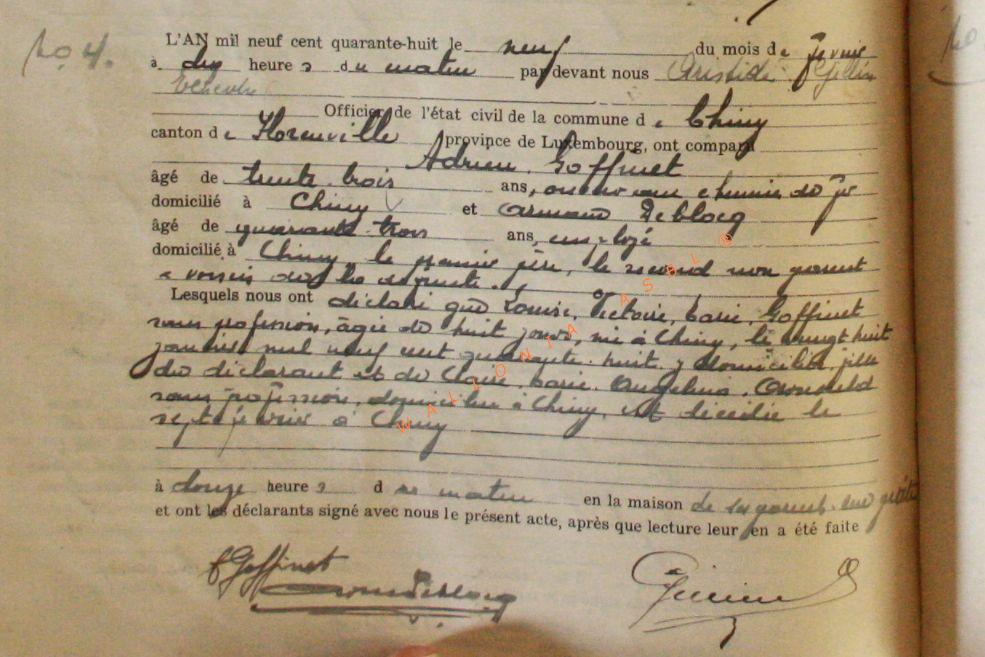 No 4.
L'AN mil neuf cent quarante-huit le neuf du mois de février
à dix heures du matin par devant nous Aristide
Officier de l'état civil de la commune de Chiny
canton de Florenville province de Luxembourg, ont comparu
Adrien Goffinet
âgé de trente trois ans, ouvrier au chemin de fer
domicilié à Chiny et Armand Deblocq
âgé de quarante trois ans, employé
domicilié à Chiny, le premier père, le second non parent
voisin de la défunte.
Lesquels nous ont déclaré que Louise, Victoire, Marie, Goffinet
sans profession, âgée de huit jours, née à Chiny, le vingt huit
janvier mil neuf cent quarante huit, y domiciliée, fille
du déclarant et de Claire, Marie, Angelina,
sans profession, domiciliée à Chiny, est décédée le
sept février à Chiny
à douze heures du matin en la maison de ses parents, rue
et ont les déclarants signé avec nous le présent acte, après que lecture leur en a été faite
Goffinet
Deblocq
WALLONIA ASBL ©